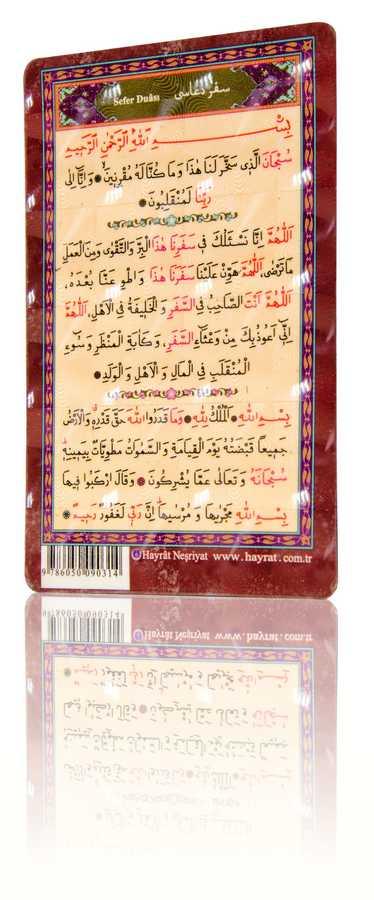 Sefer Duâsı سفر دعاسى
بِسْمِ اللّٰهِ الرَّحْمٰنِ الرَّحِيمِ
سُبْحَانَ الَّذِى سَخَّرَ لَنَا هٰذَا وَمَا كُنَّا لَهُ مُقْرِنِينَ ● وَاِنَّٓا اِلٰى
رَبِّنَا لَمُنْقَلِبُونَ ●
اَللّٰهُمَّ اِنَّا نَسْئَلُكَ فِى سَفَرِنَا هٰذَا الْبِرَّ وَالتَّقْوٰى وَمِنَ الْعَمَلِ
مَا تَرْضٰى اَللّٰهُمَّ هَوِّنْ عَلَيْنَا سَفَرَنَا هٰذَا وَاطْوِ عَنَّا بُعْدَهُ،
اَللّٰهُمَّ اَنْتَ الصَّاحِبُ فِى السَّفَرِ وَالْخَلِيفَةُ فِى الْاَهْلِ، اَللّٰهُمَّ
اِنِّى اَعُوذُبِكَ مِنْ وَعْثَٓاءِ السَّفَرِ، وَكَاٰبَةِ الْمَنْظَرِ وَسُٓوءِ
الْمُنْقَلَبِ فِى الْمَالِ وَالْاَهْلِ وَالْوَلَدِ ●
بِسْمِ اللّٰهِ ● اَلْمُلْكُ لِلّٰهِ ● وَمَا قَدَرُوا اللّٰهَ حَقَّ قَدْرِهِ وَالْاَرْضُ
جَمِيعًا قَبْضَتُهُ يَوْمَ الْقِيَامَةِ وَالسَّمٰوَاتُ مَطْوِيَّاتٌ بِيَمِينِهِ
سُبْحَانَهُ وَتَعَالٰى عَمَّا يُشْرِكُونَ ● وَقَالَ ارْكَبُوا فِيهَا
بِسْمِ اللّٰهِ مَجْرٰۭيهَا وَمُرْسٰيهَا اِنَّ رَبِّى لَغَفُورٌ رَحِيمٌ ●
Hayrât Neşriyat www.hayrat.com.tr
9 786050 090314